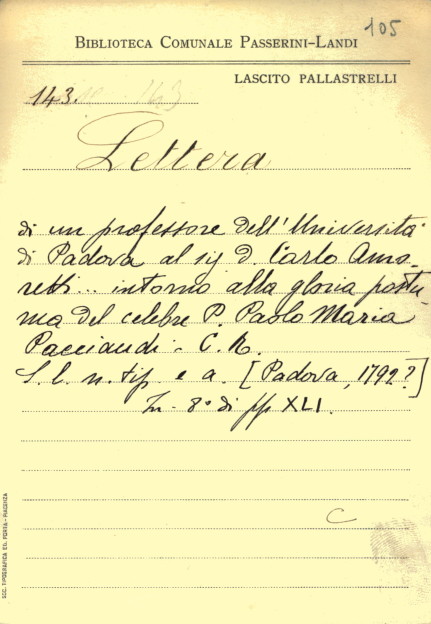 105
BIBLIOTECA COMUNALE PASSERINI-LANDI
LASCITO PALLASTRELLI
143. 163
Lettera
di un professore dell'Università
di Padova al sig d. Carlo Amo-
retti... intorno alla gloria postu
ma del celebre P. Paolo Maria
Paciaudi - C. R.
S. l. n. tip. e a. [Padova, 1792?]
In-8° di pp XLI.
C
SOC. TIPOGRAFICA ED. PORTA - PIACENZA